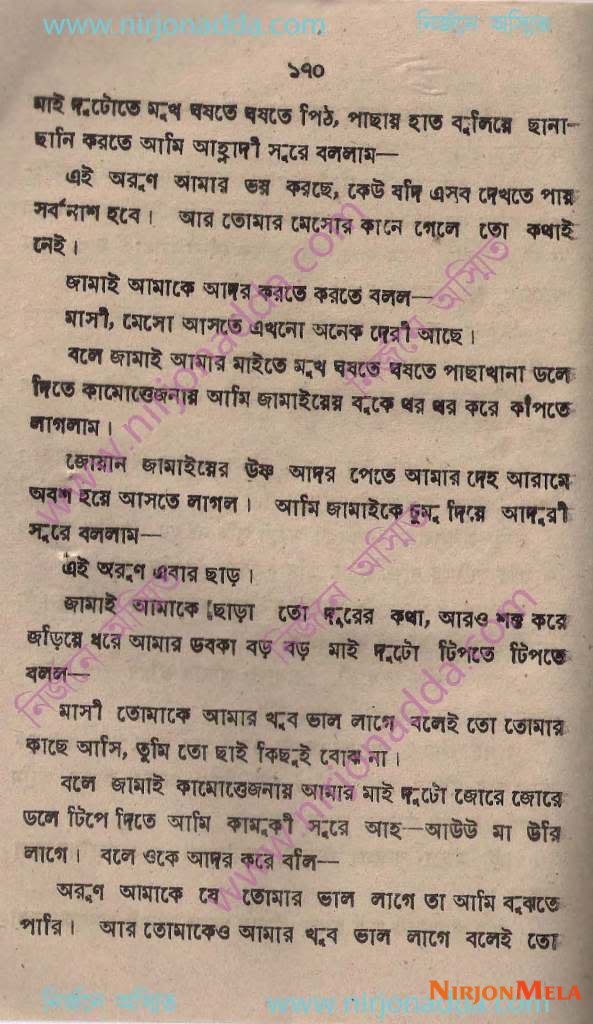 www.nirjonadda.com নির্জনে অস্মিত
১৭০
মাই দুটোতে মুখ ঘষতে ঘষতে পিঠ, পাছায় হাত বুলিয়ে ছানা-
ছানি করতে আমি আহ্লাদী সুরে বললাম—
এই অরুণ আমার ভয় করছে, কেউ যদি এসব দেখতে পায়
সর্বনাশ হবে। আর তোমার মেসোর কানে গেলে তো কথাই
নেই।
জামাই আমাকে আদর করতে করতে বলল—
মাসী, মেসো আসতে এখনো অনেক দেরী আছে।
বলে জামাই আমার মাইতে মুখ ঘষতে ঘষতে পাছাখানা ডলে
দিতে কামোত্তেজনায় আমি জামাইয়ের বুকে থর থর করে কাঁপতে
লাগলাম।
জোয়ান জামাইয়ের উষ্ণ আদর পেতে আমার দেহ আরামে
অবশ হয়ে আসতে লাগল। আমি জামাইকে চুমু দিয়ে আদুরী
সুরে বললাম—
এই অরুণ এবার ছাড়।
জামাই আমাকে ছোড়া তো দূরের কথা, আরও শক্ত করে
জড়িয়ে ধরে আমার ডবকা বড় বড় মাই দুটো টিপতে টিপতে
বলল—
মাসী তোমাকে আমার খুব ভাল লাগে বলেই তো তোমার
কাছে আসি, তুমি তো ছাই কিছুই বোঝ না।
বলে জামাই কামোত্তেজনায় আমার মাই দুটো জোরে জোরে
ডলে টিপে দিতে আমি কামুকী সুরে আহ—আউউ মা উরি
লাগে। বলে ওকে আদর করে বলি—
অরুণ আমাকে যে তোমার ভাল লাগে তা আমি বুঝতে
পারি। আর তোমাকেও আমার খুব ভাল লাগে বলেই তো
www.nirjonadda.com
নির্জনে অস্মিত
নির্জনে অস্মিত
নির্জনে অস্মিত
www.nirjonadda.com
NIRJONMELA
নির্জনে অস্মিত www.nirjonadda.com